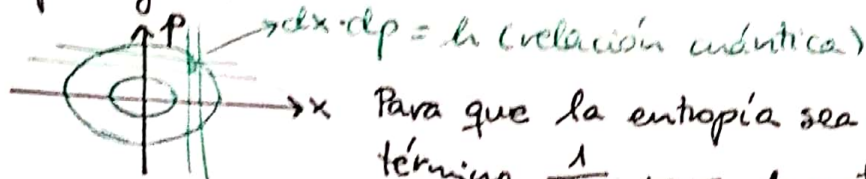 p
dx·dp = h (relación cuántica)
x Para que la entropía sea
término 1